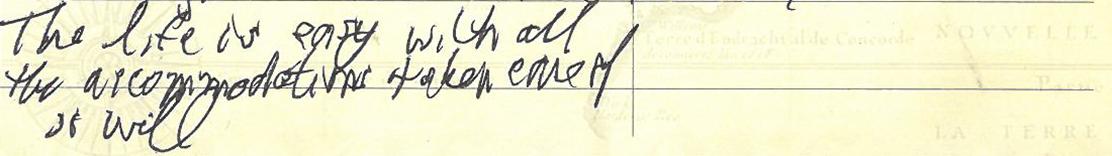 The life is easy with all
the accommodations taken care of
at will
Terre d'Endracht al de Concorde
NOVVELLE
LA TERRE